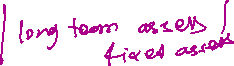 long team assets
fixed assets